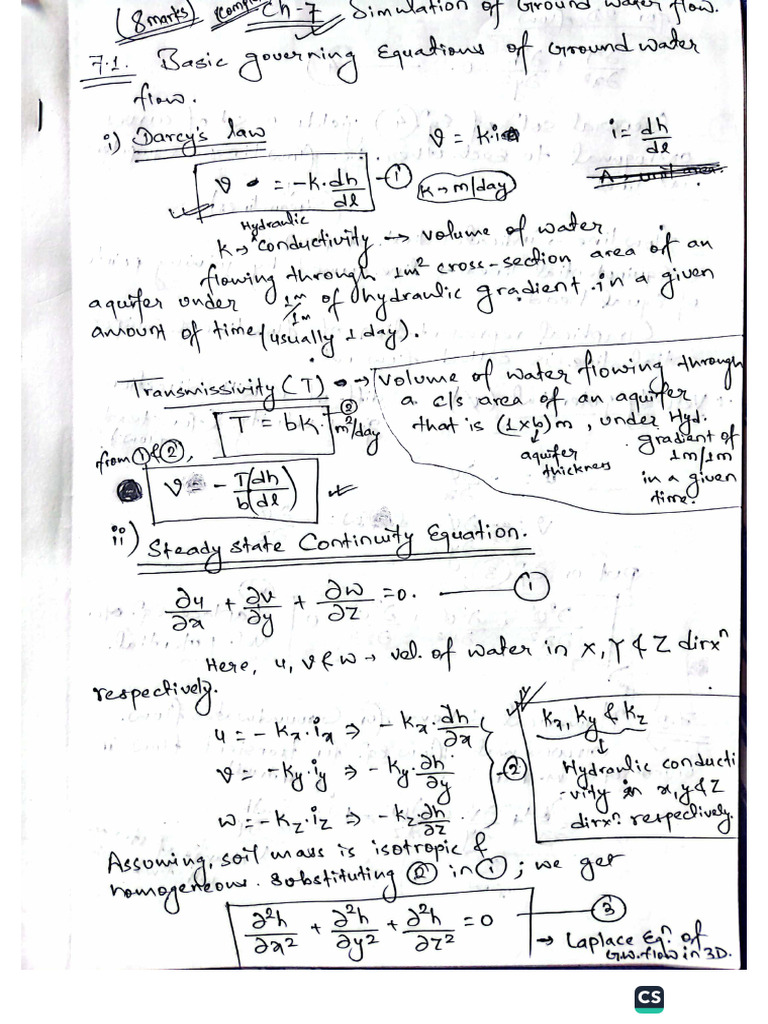 (8 marks) Ch-7 Simulation of Ground water flow.
7.1. Basic governing Equations of Groundwater
flow.
i) Darcy's law v = k.i i = dh/dl
v = -k.dh/dl - ① k → m/day
Hydraulic
k → conductivity → volume of water
flowing through 1m² cross-section area of an
aquifer under 1m/1m of hydraulic gradient in a given
amount of time (usually 1 day).
Transmissivity (T) → Volume of water flowing through
a c/s area of an aquifer
that is (1×b)m, under Hyd.
aquifer thickness
gradient of
1m/1m
in a given
time.
T = bk. ② m²/day
from ① & ②,
v = - T/b (dh/dl)
ii) Steady state Continuity Equation.
∂u/∂x + ∂v/∂y + ∂w/∂z = 0. — ①
Here, u, v & w → vel. of water in X, Y & Z dirxⁿ
respectively.
u = - kx.ix ⇒ - kx.∂h/∂x
v = - ky.iy ⇒ - ky.∂h/∂y - ②
w = - kz.iz ⇒ - kz.∂h/∂z
kx, ky & kz
↓
Hydraulic conducti
-vity in x, y & z
dirxⁿ respectively.
Assuming, soil mass is isotropic &
homogeneous. Substituting ② in ①; we get
∂²h/∂x² + ∂²h/∂y² + ∂²h/∂z² = 0 — ③
→ Laplace Eqⁿ of
G.W. flow in 3D.
CS